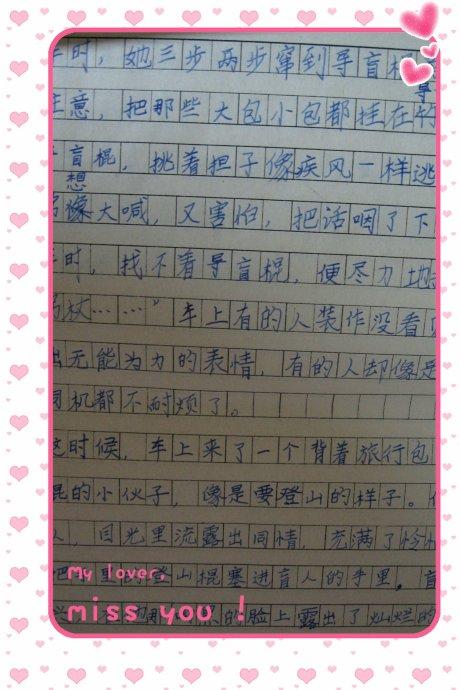 时，她三步两步窜到导盲棍
意，把那些大包小包都挂在
导
盲棍，挑着担子像疾风一样逃
想
像大喊，又害怕，把话咽了下
时，找不着导盲棍，便尽力地
杖……”车上有的人装作没看
出无能为力的表情，有的人却像是
司机都不耐烦了。
这时候，车上来了一个背着旅行包
棍的小伙子，像是要登山的样子。
人，目光里流露出同情，充满了怜
把 里的登山棍塞进盲人的手里。盲
的脸上露出了灿烂的
My lover,
miss you !